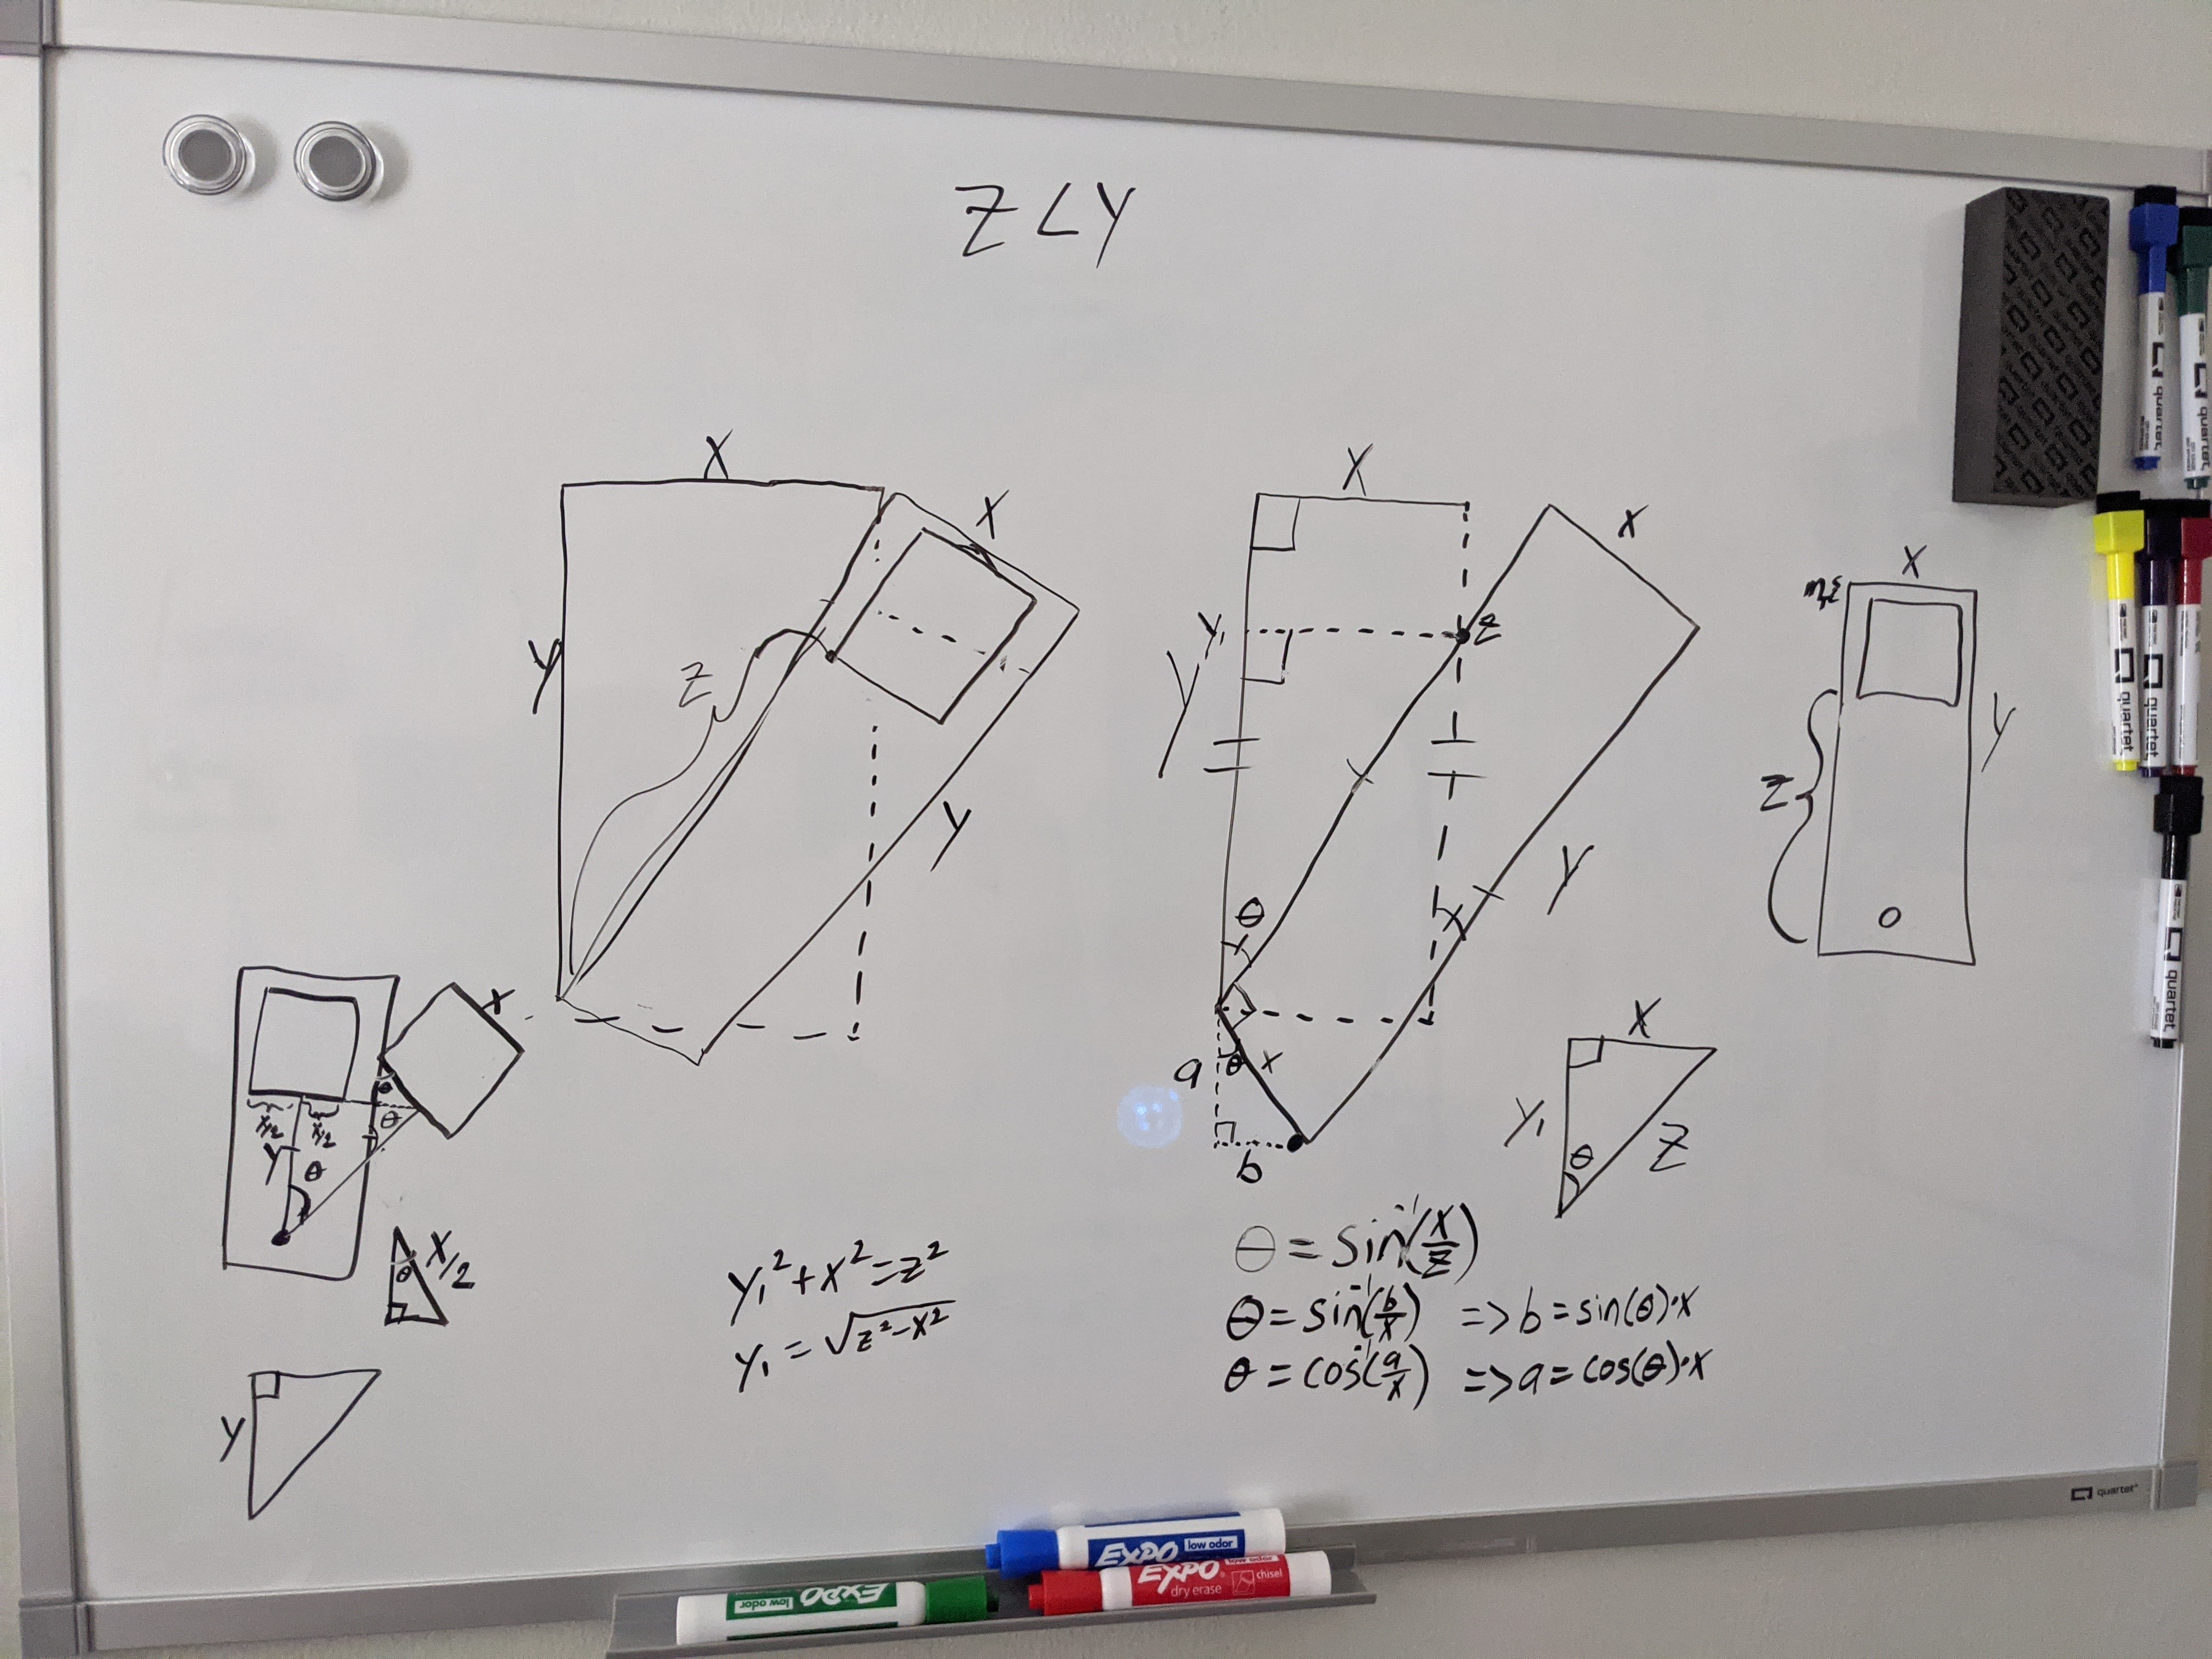 Z < Y
X
X
Y
Z
Y
X
X
Y₁
Z
Y
Y
θ
θ
X
a
b
X
Y
Z
O
X
θ
θ
X/2
X/2
Y
θ
X/2
θ
Y
X
Y₁
θ
Z
Y₁² + X² = Z²
Y₁ = √Z² - X²
θ = sin⁻¹(X/Z)
θ = sin⁻¹(b/X) => b = sin(θ)·X
θ = cos⁻¹(a/X) => a = cos(θ)·X
quartet
quartet
quartet
quartet
quartet
quartet
quartet
EXPO low odor
EXPO low odor
dry erase chisel
EXPO
low odor